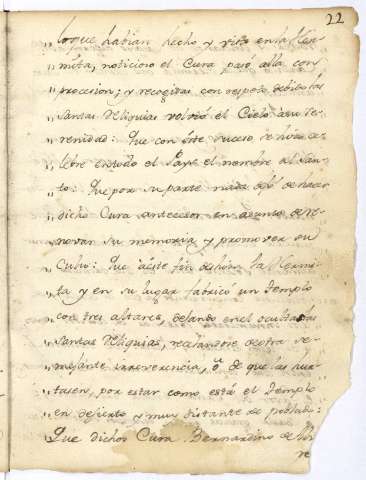 22
„ lo que habian hecho y visto en la Her-
„ mita, noticioso el Cura pasó alla con
„ precession; y recogidas con respeto debido las
„ santas Reliquias volvió el Cielo à su se-
„ renidad: Que con este suceso se hizo ce-
„ lebre en todo el Pays el nombre del San-
„ to: Que por su parte nada dejó de hacer
„ dicho Cura antecesor en asunto de re-
„ novar su memoria y promover su
„ Culto: Que a este fin deshizo la Hermi-
„ ta y en su lugar fabricó un Templo
„ con tres altares, dejando en el ocultas las
„ santas Reliquias, recelandose de otra se-
„ mejante irreverencia, ò de que las hur-
„ tasen, por estar como está el Templo
„ en desierto y muy distante de poblado:
„ Que dicho Cura Bernardino de
re